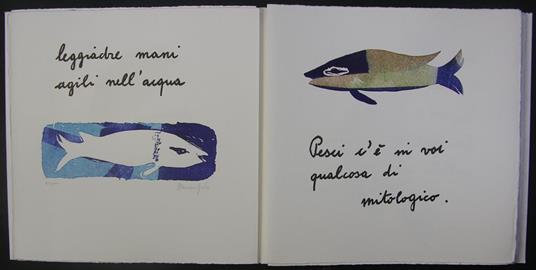 leggiadre mani
agili nell'acqua
Pesci c'è in voi
qualcosa di
mitologico.